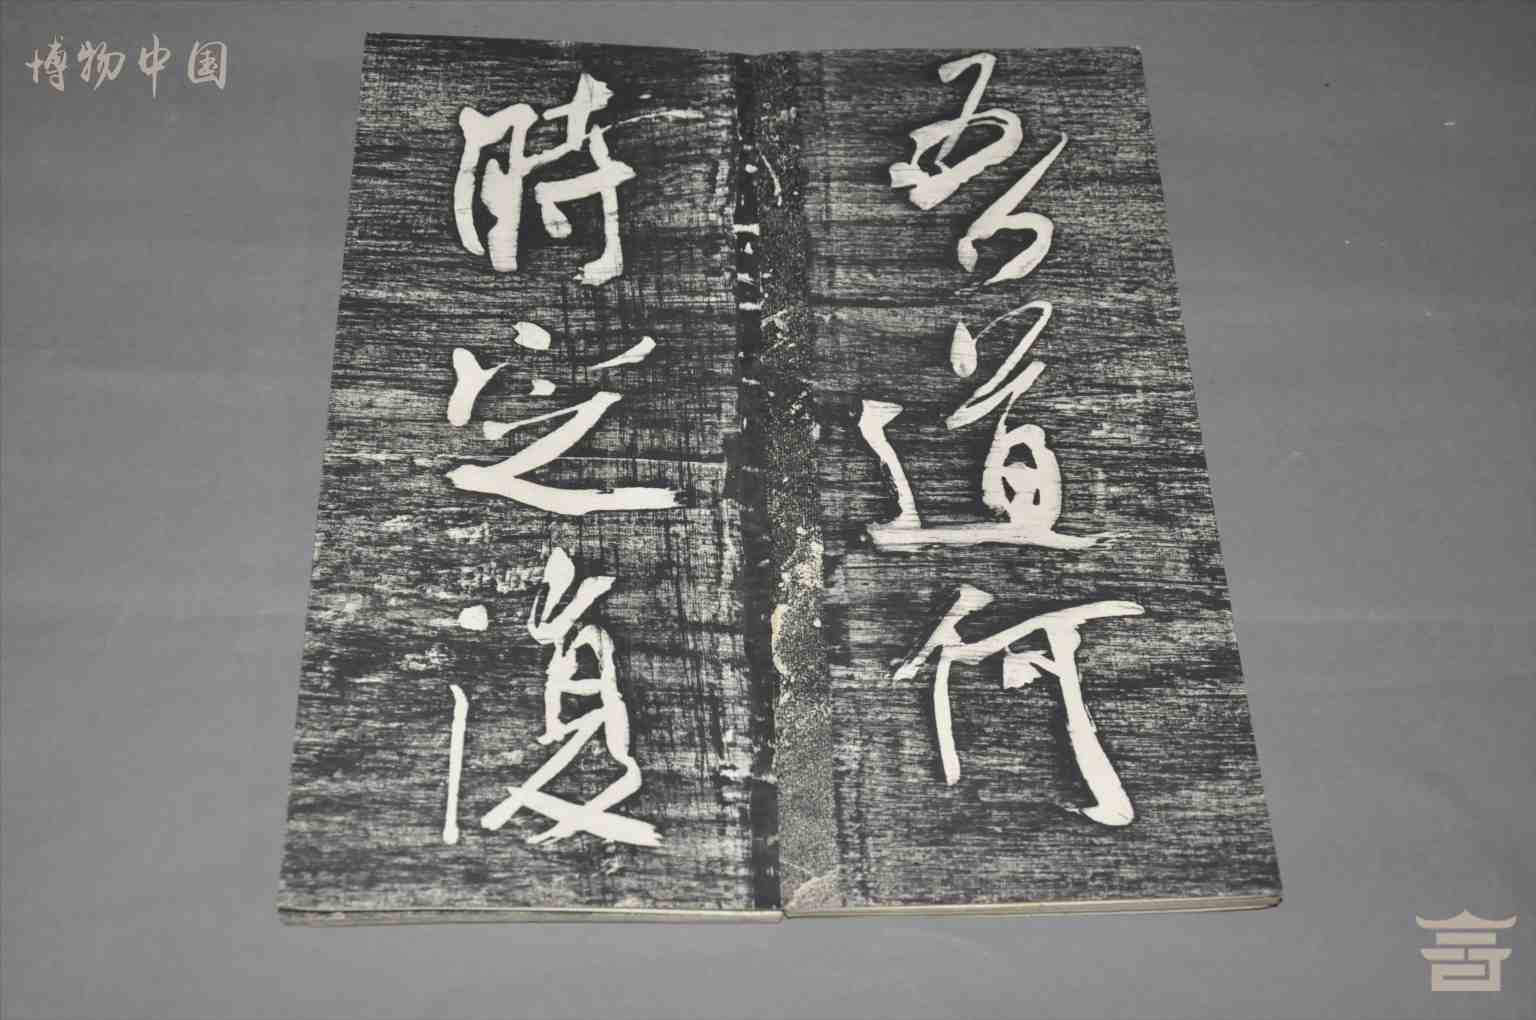 博物中国
吾道何
時定復